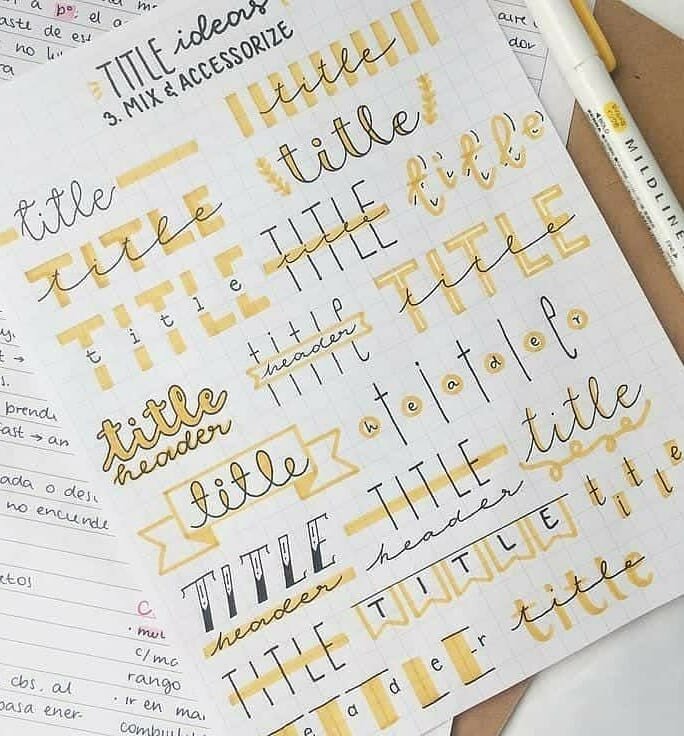 TITLE ideas
3. MIX & ACCESSORIZE
title
title
title
TITLE
title
TITLE
title
title
TITLE
title
TITLE
title
title
header
title
header
title
header
title
TITLE
header
title
TITLE
header
TITLE
title
TITLE
title
eader
MILDLINER
a pº: el a
aste de es
no
aire
dor
brend
ast → an
ada o des
no enciende
etos
C.
· mul
c/ma
rango
· ir en ma
combu
cbs. al
pasa ener-